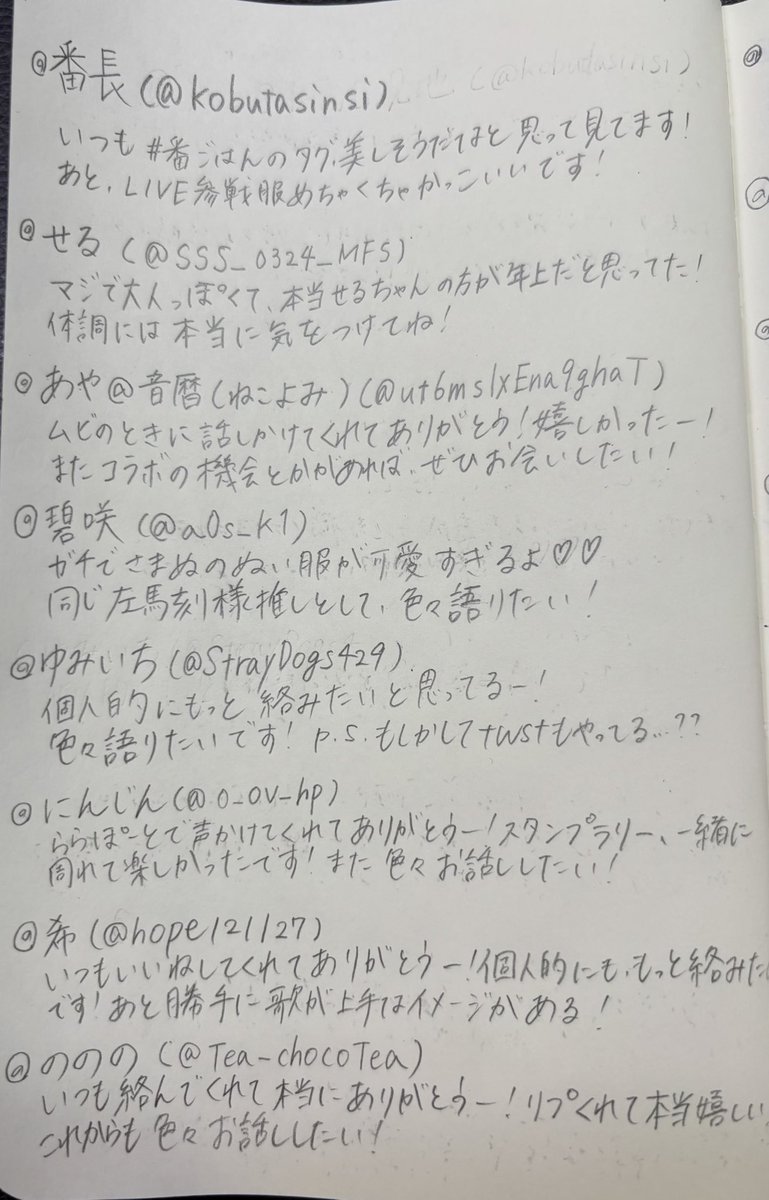 ◎番長(@kobutasinsi)
いつも #番ごはんのタグ、美しそうだなぁと思って見てます!
あと、LIVE参戦服めちゃくちゃかっこいいです!
◎せる(@SSS_0324_MFS)
マジで大人っぽくて、本当せるちゃんの方が年上だと思ってた!
体調には本当に気をつけてね!
◎あや@音暦(ねこよみ)(@ut6mslxEna9ghaT)
ムビのときに話しかけてくれてありがとう!嬉しかったー!
またコラボの機会とかがあれば、ぜひお会いしたい!
◎碧咲(@a0s_k1)
ガチでさまぬのぬい服が可愛すぎるよ♡♡
同じ左馬刻様推しとして、色々語りたい!
◎ゆみいち(@StrayDogs429)
個人的にもっと絡みたいと思ってるー!
色々語りたいです! P.S.もしかしてtwstもやってる…??
◎にんじん(@0_0v_hp)
ららぽーとで声かけてくれてありがとうー!スタンプラリー、一緒に
周れて楽しかったです!また色々お話ししたい!
◎希(@hope121127)
いつもいいねしてくれてありがとうー!個人的にも、もっと絡みたい
です!あと勝手に歌が上手なイメージがある!
◎ののの(@Tea_chocoTea)
いつも絡んでくれて本当にありがとうー!リプくれて本当嬉しい
これからも色々お話ししたい!